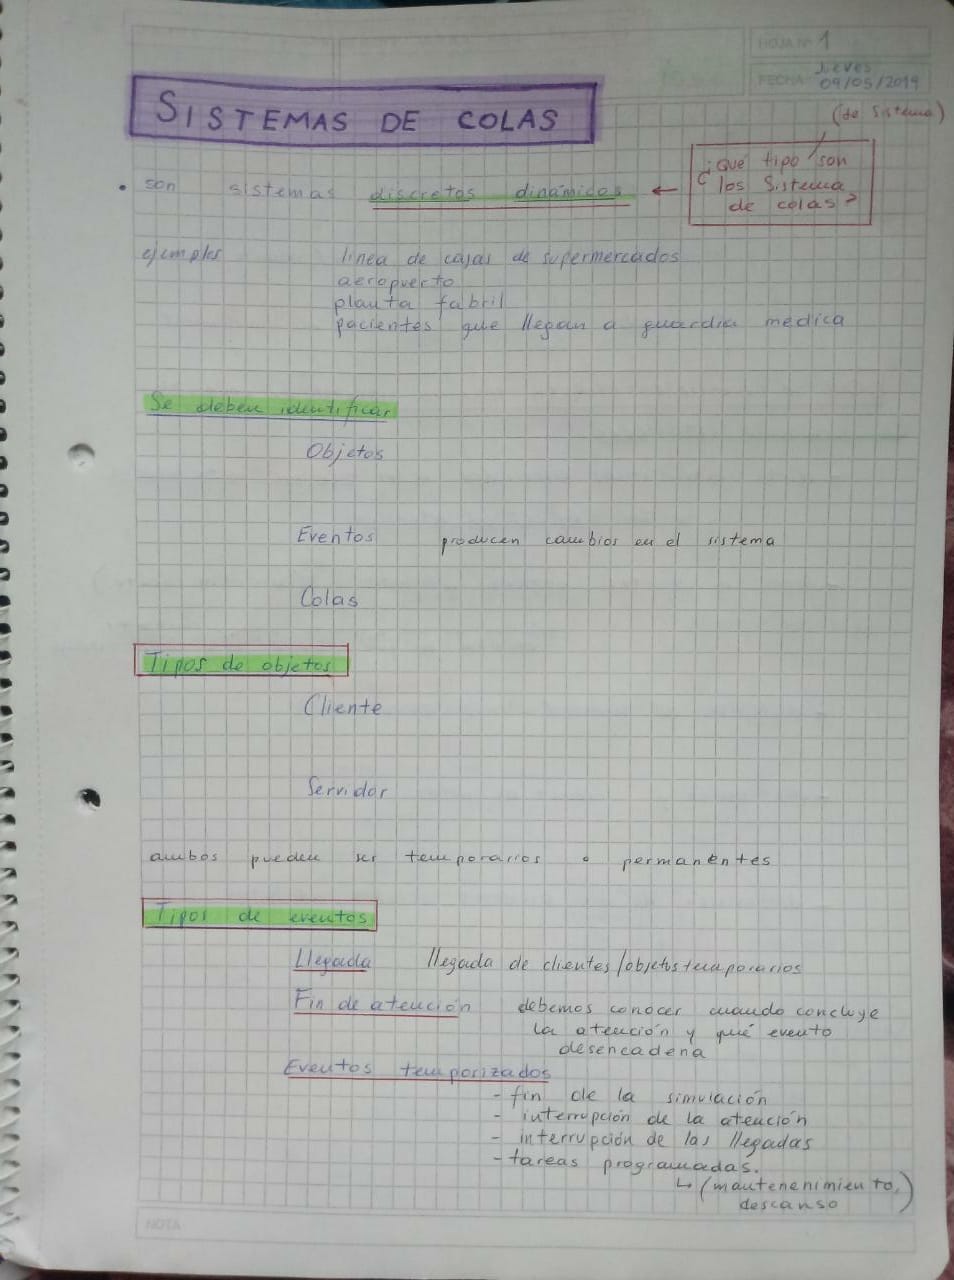 HOJA Nº 1
Jueves
FECHA 09/05/2019
SISTEMAS DE COLAS
(de sistema)
¿Qué tipo son
los sistema
de colas?
• son sistemas discretos dinámicos ←
ejemplos línea de cajas de supermercados
aeropuerto
planta fabril
pacientes que llegan a guardia medica
Se deben identificar
Objetos
Eventos producen cambios en el sistema
Colas
Tipos de objetos
Cliente
Servidor
ambos pueden ser temporarios o permanentes
Tipos de eventos
Llegada llegada de clientes/objetos temporarios
Fin de atención debemos conocer cuando concluye
la atención y qué evento
desencadena
Eventos temporizados
- fin de la simulación
- interrupción de la atención
- interrupción de las llegadas
- tareas programadas.
↳ (mantenenimiento,)
descanso
NOTA